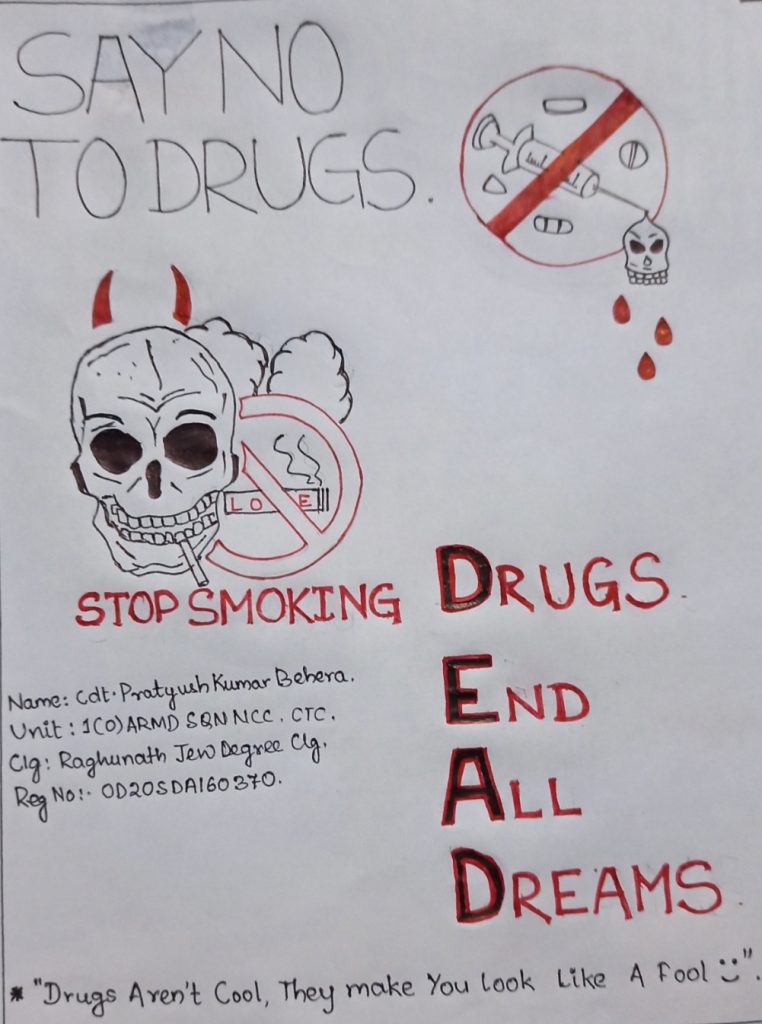 SAY NO
TO DRUGS.
LO E
STOP SMOKING
DRUGS.
END
ALL
DREAMS.
Name: Cdt. Pratyush Kumar Behera.
Unit : 1(O) ARMD SQN NCC. CTC.
Clg: Raghunath Jew Degree Clg.
Reg No:- OD20SDA160370.
* "Drugs Aren't Cool, They make You look Like A Fool".